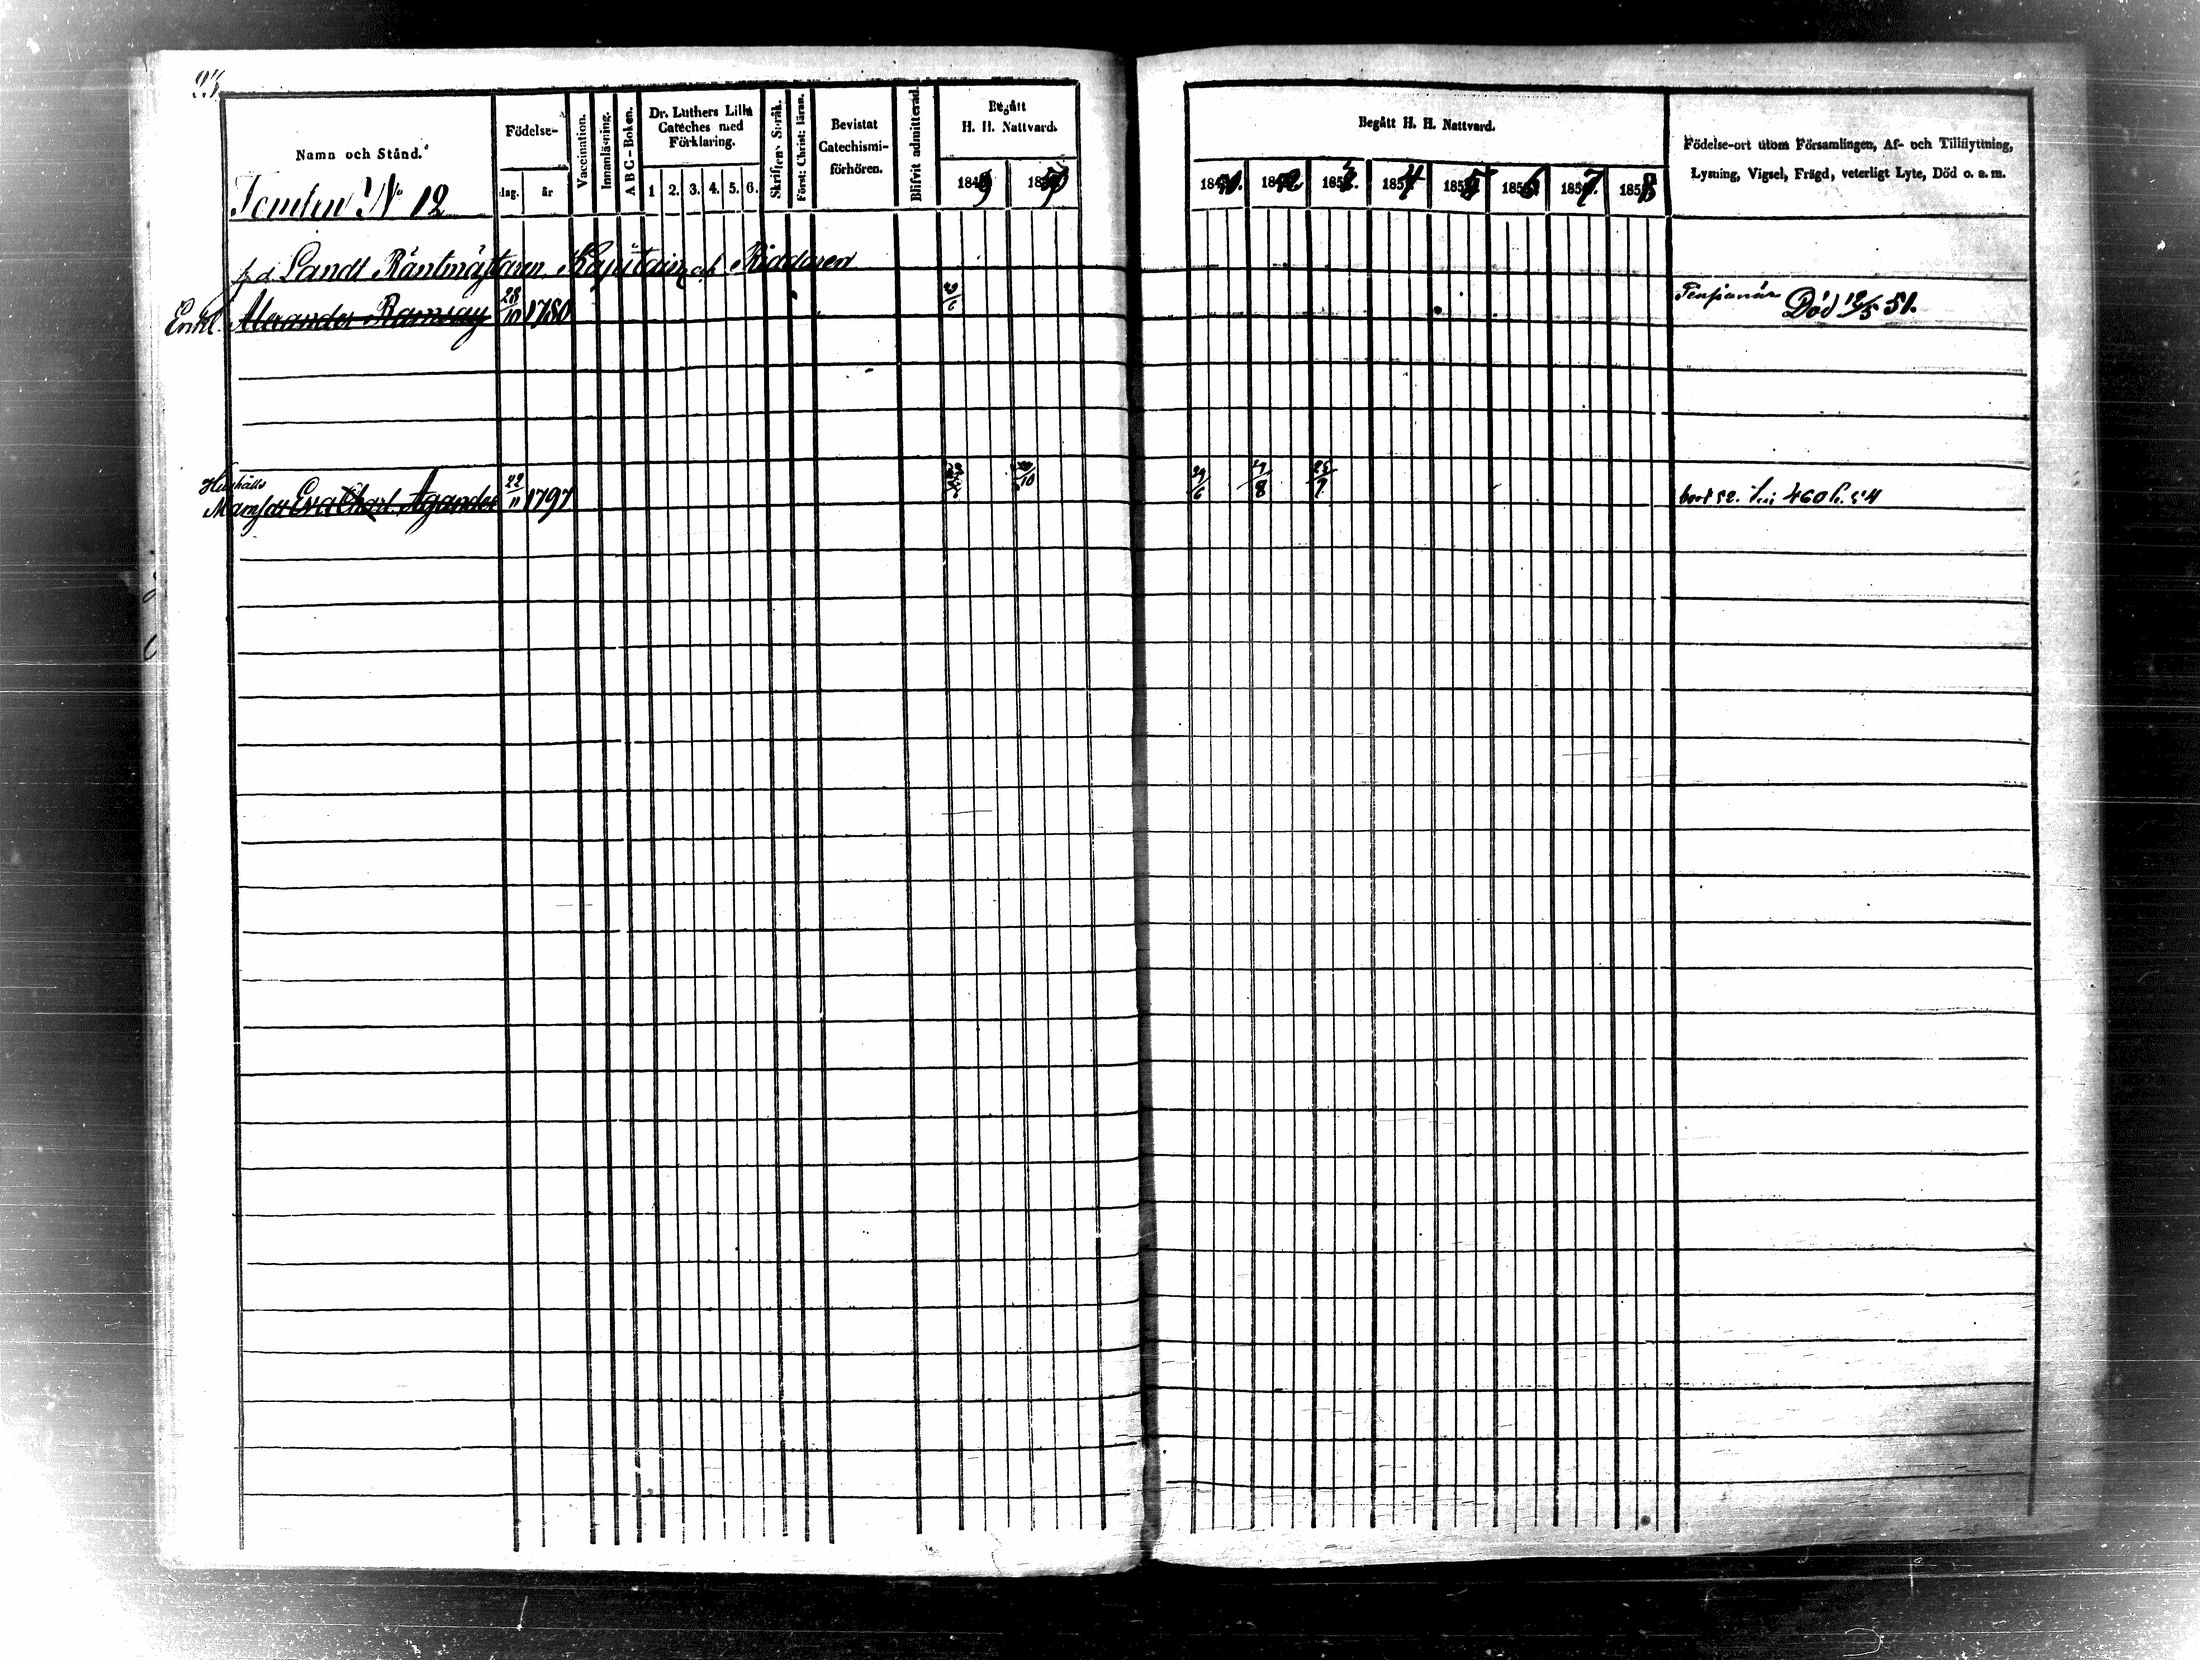 Namn och Stånd.
Tomten No 12
Födelse-
dag. år
Vaccination.
Innanläsning.
A B C-Boken.
Dr. Luthers Lilla Cateches med Förklaring.
1 2. 3. 4. 5. 6.
Skriftens Språk.
Först: Christ: läran.
Bevistat Catechismi-förhören.
Blifvit admitterad.
Begått H. H. Nattvard.
1849 1850
Begått H. H. Nattvard.
1851. 1852 1853. 1854 1855 1856 1857 1858
Födelse-ort utom Församlingen, Af- och Tillflyttning,
Lysning, Vigsel, Frägd, veterligt Lyte, Död o. s. m.
f. d. Landt Räntmästaren Kapitain och Riddaren
Enkl. Alexander Ramsay 28/10 1780 Pensionär Död 12/5 51.
Hushålls
Mamsell Eva Charl. Agander 22/11 1797 29/6 27/8 25/9 bort 52. 460 54